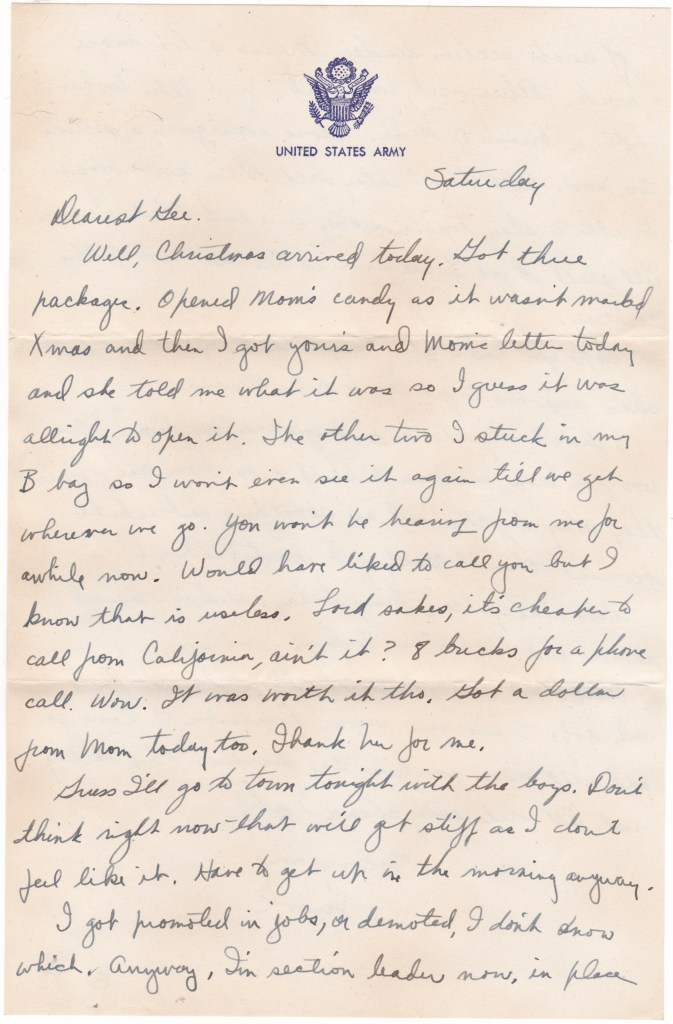 UNITED STATES ARMY
Saturday
Dearest Gee.
Well, Christmas arrived today. Got three
packages. Opened Mom's candy as it wasn't marked
Xmas and then I got your's and Mom's letter today
and she told me what it was so I guess it was
allright to open it. The other two I stuck in my
B bag so I won't even see it again till we get
wherever we go. You won't be hearing from me for
awhile now. Would have liked to call you but I
know that is useless. Lord sakes, it's cheaper to
call from California, ain't it? 8 bucks for a phone
call. Wow. It was worth it tho. Got a dollar
from Mom today too. Thank her for me.
Guess I'll go to town tonight with the boys. Don't
think right now that we'll get stiff as I don't
feel like it. Have to get up in the morning anyway.
I got promoted in jobs, or demoted, I don't know
which. Anyway, I'm section leader now, in place